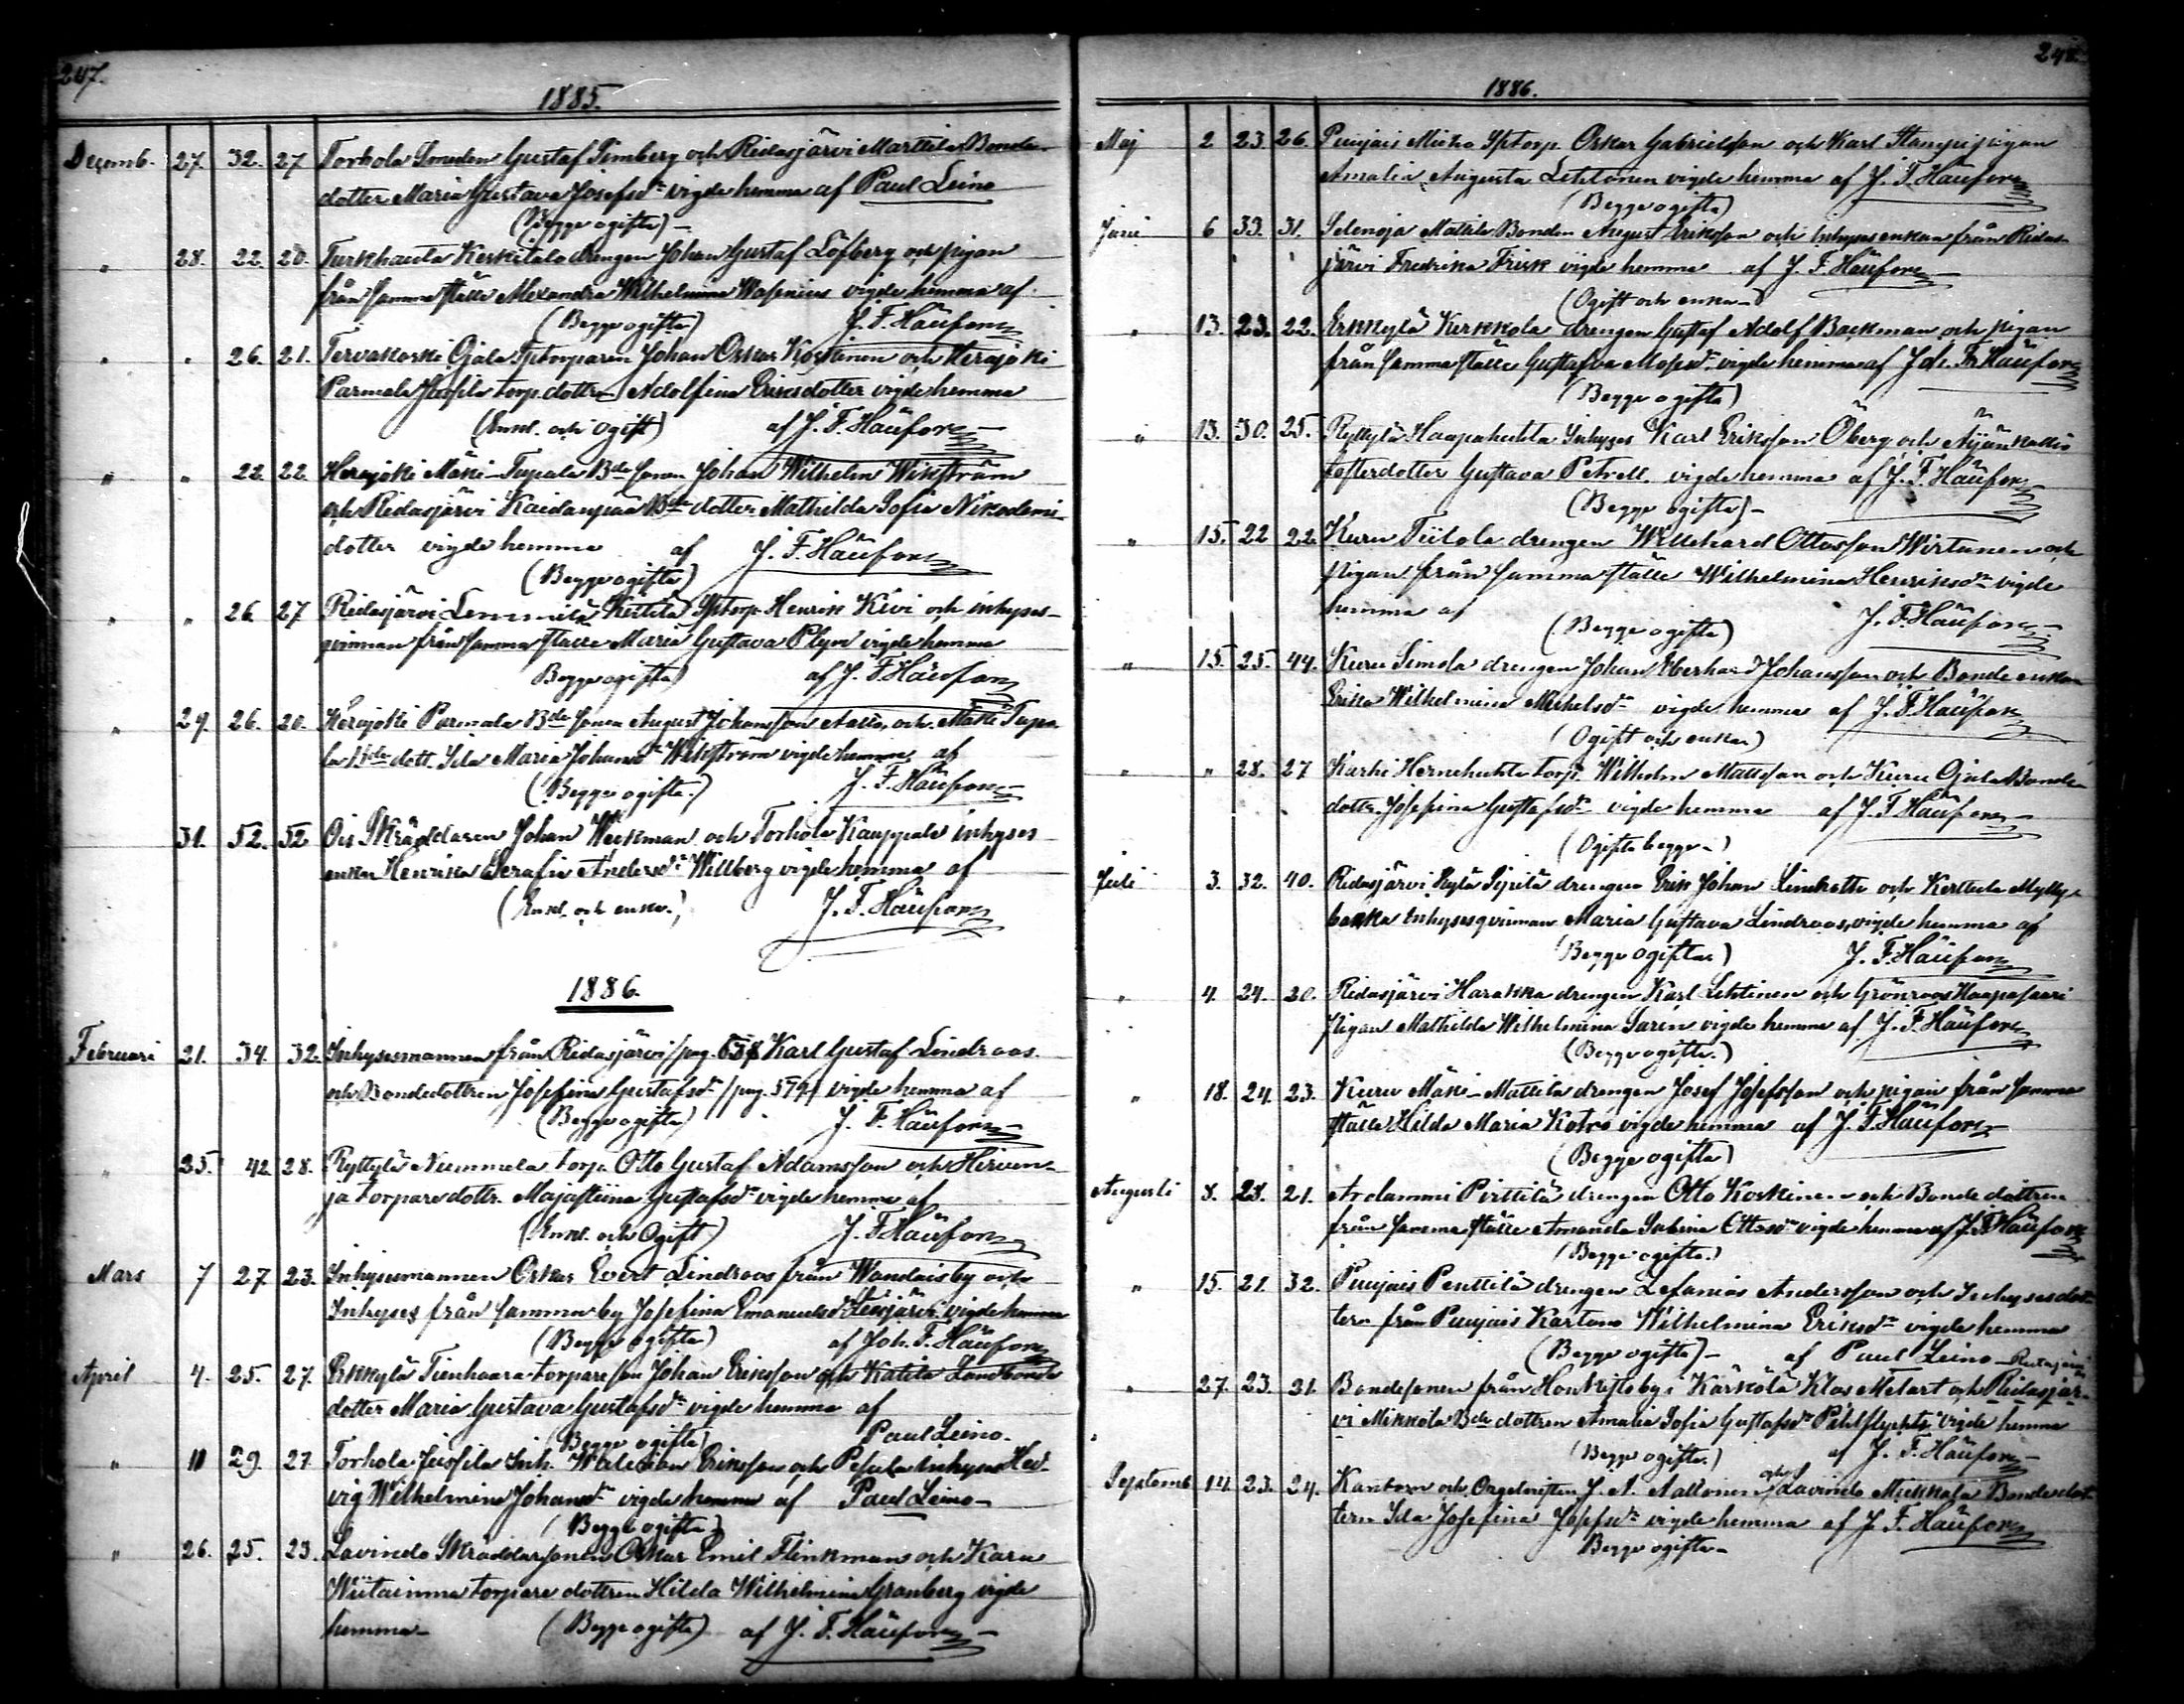 247.
1885.
Decemb. 27. 32. 27 Torhola Smeden Gustaf Timberg och Ridasjärvi Marttila Bonde-
dotter Maria Gustava Josefsdr vigde hemma af Paul Leino
(Begge ogifta) -
" 28. 22. 20. Turkhauta Keskitalo drengen Johan Gustaf Löfberg och pigan
från samma ställe Alexandra Wilhelmina Wasenius vigde hemma af
(Begge ogifta) J. F. Häufors
" " 26. 21. Tervakoski Ojala Sptorparen Johan Oskar Koskinen och Herajoki
Parmala Jussila torp. dottren Adolfina Eriksdotter vigde hemma
(Enkl. och ogift) af J. F. Häufors
" " 22. 22. Herajoki Mäki-Tupala Bde sonen Johan Wilhelm Wikström
och Ridasjärvi Kaidanpää Bde dotter Mathilda Sofia Nikodemi
dotter vigde hemma af J. F. Häufors
(Begge ogifta)
" " 26. 27 Ridasjärvi Lemmilä Sptorp. Henrik Kivi och inhyses-
qvinnan från samma ställe Maria Gustava Plym vigde hemma
Begge ogifta) af J. F. Häufors
" 29. 26. 20. Herajoki Parmala Bde sonen August Johansson och Mäki Tupa-
la Bde dott. Ida Maria Johansdr Wikström vigde hemma af
(Begge ogifta.) J. F. Häufors
31. 52. 52 Ois Skräddaren Johan Weckman och Torhola Kauppala inhyses
enkan Henrika Serafia Andersdr Willberg vigde hemma af
(Enkl. och enka.) J. F. Häufors
1886.
Februari 21. 34. 32. Inhysesmannen från Ridasjärvi /pag. Karl Gustaf Lindroos.
och Bondedottren Josefina Gustafsdr /pag. 579/ vigde hemma af
(Begge ogifta) J. F. Häufors
" 25. 42 28. Ryttylä Nummela torp. Otto Gustaf Adamsson och Hirven-
ja torparedottr. Majastiina Gustafsdr vigde hemma af
(Enkl. och Ogift) J. F. Häufors
Mars 7 27 23. Inhysesmannen Oskar Evert Lindroos från Wandais by och
Inhyses från samma by Josefina Emanuelsdr vigde hemma
(Begge ogifta) af Joh. F. Häufors
April 4. 25. 27. Erkkylä Tienhaara torpareson Johan Eriksson och Katila Landbonde
dotter Maria Gustava Gustafsdr vigde hemma af
(Begge ogifta) Paul Leino.
" 11 29. 27. Torhola Jussila Inh. Walerian Eriksson och inhyses Hed-
vig Wilhelmina Johansdr vigde hemma af Paul Leino -
(Begge ogifta)
" 26. 25. 23. Lavindo Skräddarsonen Oskar Emil Flinkman och Karu
torpare dottren Hilda Wilhelmina Granberg vigde
hemma - (Begge ogifta) af J. F. Häufors
248.
1886.
Maj 2 23 26. Puujais Sptorp. Oskar Gabrielsson och Karl Stampipigan
Amalia Augusta Lehtonen vigde hemma af J. F. Häufors
(Begge ogifta)
Juni 6 33. 31. Selenoja Mattila Bonden August Eriksson och inhyses enkan från Ridas-
järvi Fredrika Frisk vigde hemma af J. F. Häufors
(Ogift och enka -)
" 13. 23. 22. Erkkylä Kerkkola drengen Gustaf Adolf Backman och pigan
från samma ställe Gustafva Mosesdr vigde hemma af Joh. Fr. Häufors
(Begge ogifta)
" 13. 30. 25. Ryttylä Haapahuhta Inhyses Karl Eriksson Öberg och
fosterdotter Gustava Petrell. vigde hemma af J. F. Häufors
(Begge ogifta) -
" 15. 22 22. Kuru Tiitola drengen Willehard Ottosson Wirtanen och
pigan från samma ställe Wilhelmina Henriksdr vigde
hemma af (Begge ogifta) J. F. Häufors
" 15. 25. 44. Kuru Simola drengen Johan Eberhard Johansson och Bonde enkan
Erika Wilhelmina Mickelsdr vigde hemma af J. F. Häufors
(Ogift och enka)
" " 28. 27 Karhi Hernehuhta torp. Wilhelm Mattsson och Kuru Ojala Bonde
dottr. Josefina Gustafsdr vigde hemma af J. F. Häufors
(Ogifta begge -)
Juli 3. 32. 40. Ridasjärvi drengen Erik Johan Lindroth och Kerttula Mylly-
backa inhysesqvinnan Maria Gustava Lindroos, vigde hemma af
(Begge ogifta) J. F. Häufors
" 4. 24. 20. Ridasjärvi Harakka drengen Karl Lehtinen och Grönroos Haapasaari
pigan Mathilda Wilhelmina Sarin vigde hemma af J. F. Häufors
(Begge ogifta.)
" 18. 24. 23. Kuru Mäki-Mattila drengen Josef Josefsson och pigan från samma
ställe Hilda Maria Kotro vigde hemma af J. F. Häufors
(Begge ogifta)
Augusti 8. 28. 21. Ardammi Pirttilä drengen Otto Koskinen och Bonde dottren
från samma ställe Amanda Sabina Ottosdr vigde hemma af J. F. Häufors
(Begge ogifta.)
" 15. 21. 32. Puujais Penttilä drengen Zefanias Andersson och Inhysesdot-
tern från Puujais Kartano Wilhelmina Eriksdr vigde hemma
(Begge ogifta) - af Paul Leino -
" 27. 23. 21. Bondesonen från by i Kärkölä Klas Melart och Ridasjär-
vi Mikkola Bde dottren Amalia Sofia Gustafsdr vigde hemma
(Begge ogifta.) af J. F. Häufors
Septemb 14. 23. 24. Kantorn och Orgelnisten J. A. Aaltonen och Lavindo Mikkola Bondedot-
tern Ida Josefina Josefsdr vigde hemma af J. F. Häufors
Begge ogifta -